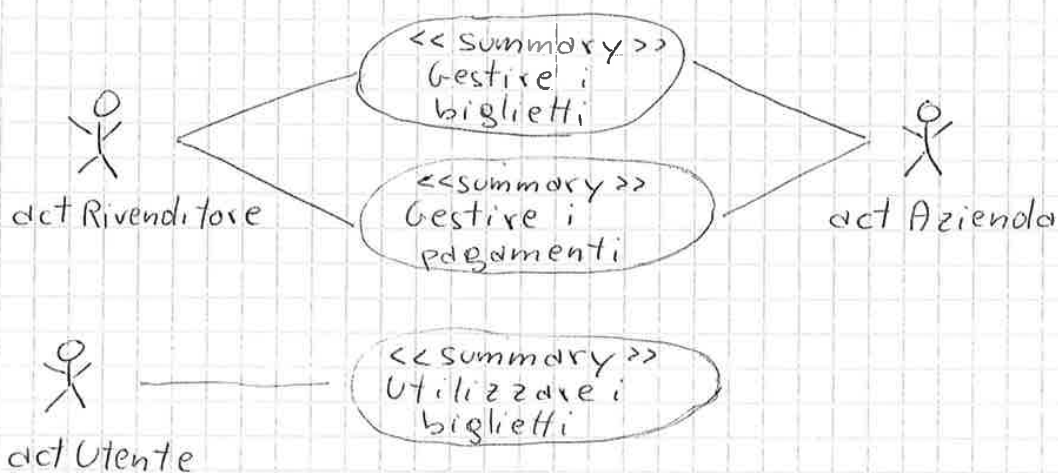 << summary >>
Gestire i
biglietti
act Rivenditore
<<summary >>
Gestire i
pagamenti
act Azienda
<<summary >>
Utilizzare i
biglietti
act Utente